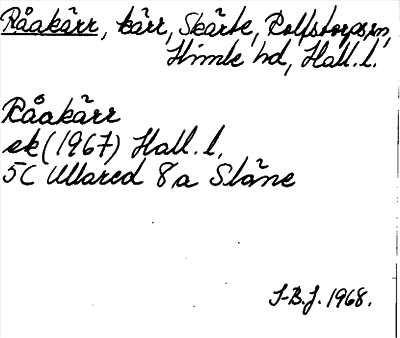 Råakärr, kärr, Skärte, Rolfstorps sn,
Himle hd, Hall. l.
Råakärr
ek (1967) Hall. l.
5C Ullared 8,a Släne
S-B.J. 1968.